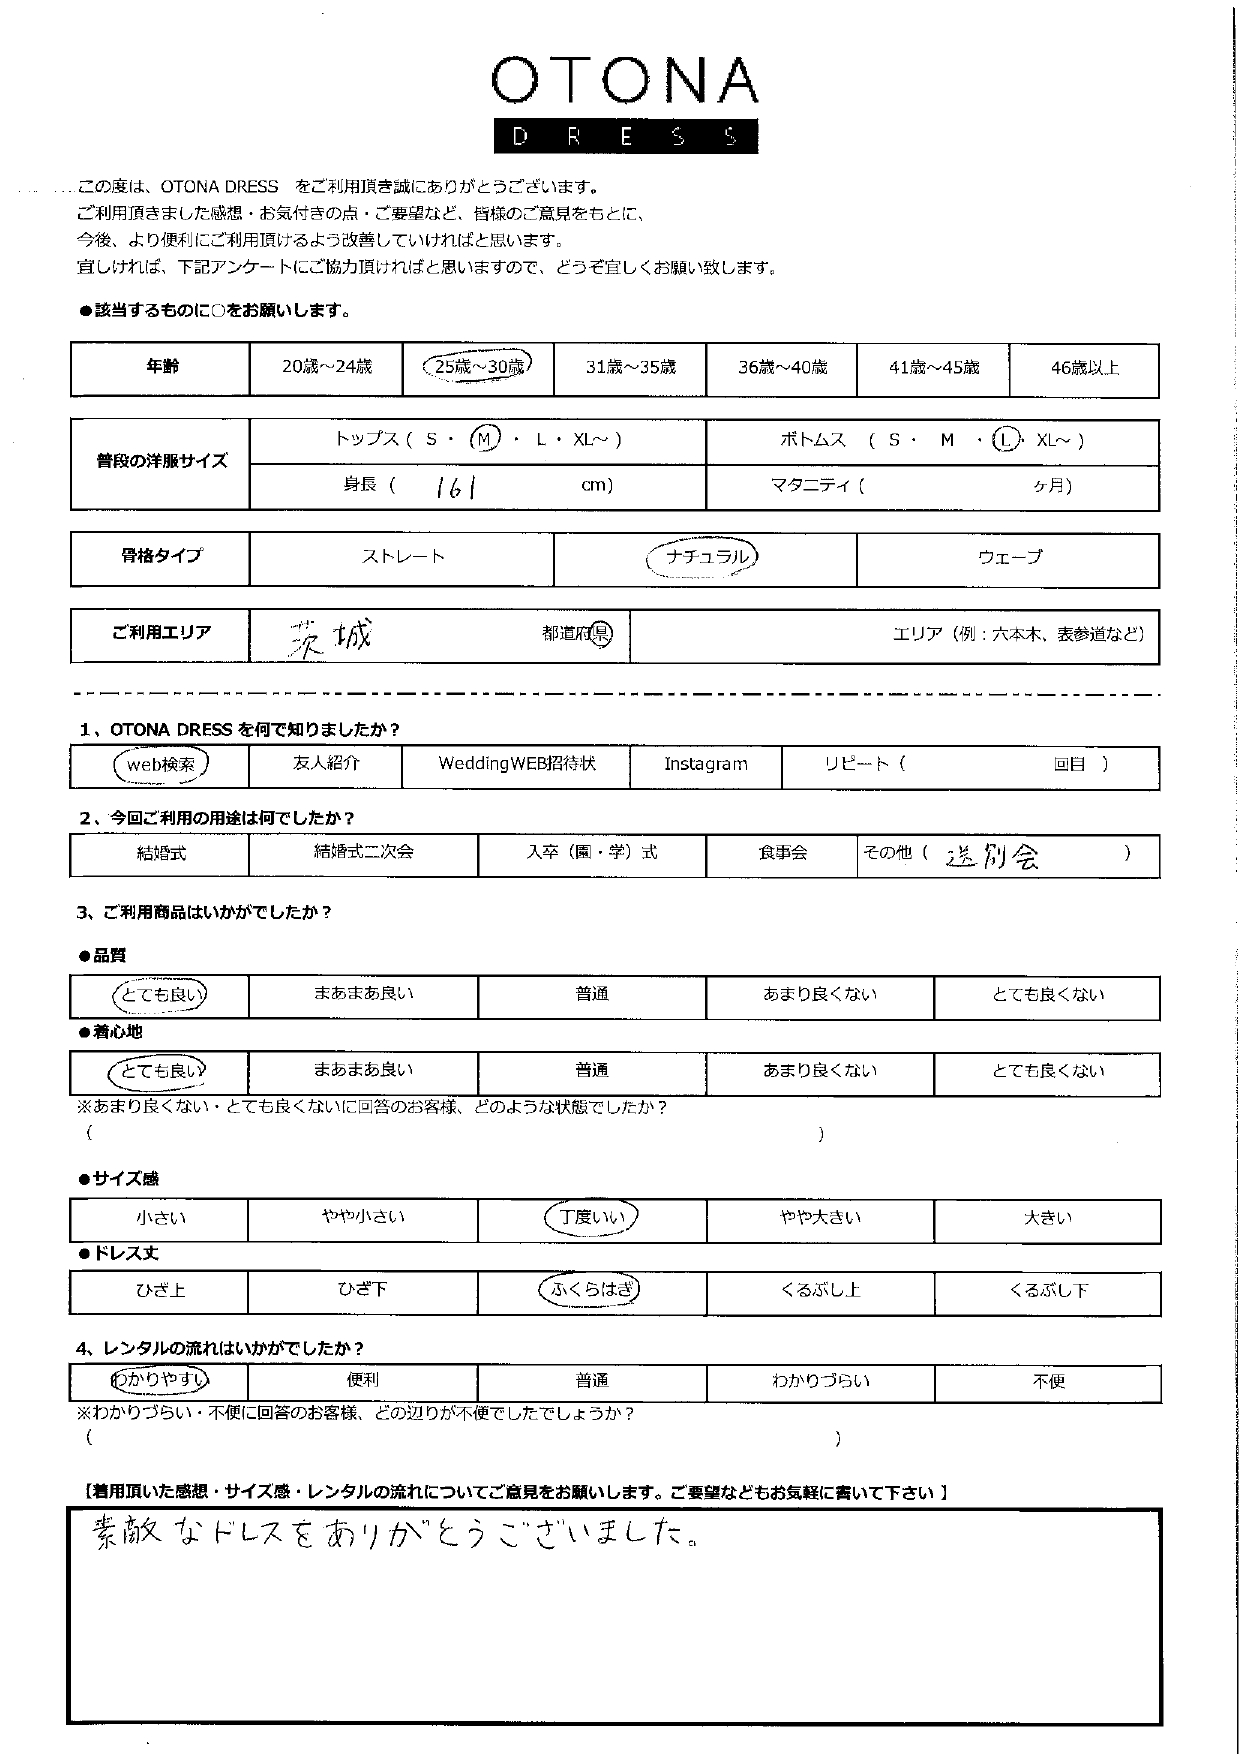 OTONA
DRESS
この度は、OTONA DRESS をご利用頂き誠にありがとうございます。
ご利用頂きました感想・お気付きの点・ご要望など、皆様のご意見をもとに、
今後、より便利にご利用頂けるよう改善していければと思います。
宜しければ、下記アンケートにご協力頂ければと思いますので、どうぞ宜しくお願い致します。
●該当するものに○をお願いします。
年齢 20歳～24歳 25歳～30歳 31歳～35歳 36歳～40歳 41歳～45歳 46歳以上
普段の洋服サイズ
トップス ( S ・ M ・ L ・ XL～ ) ボトムス ( S ・ M ・ L ・ XL～ )
身長 ( 161 cm) マタニティ ( ヶ月)
骨格タイプ ストレート ナチュラル ウェーブ
ご利用エリア 茨城 都道府県 エリア（例：六本木、表参道など）
1、OTONA DRESS を何で知りましたか？
web検索 友人紹介 WeddingWEB招待状 Instagram リピート ( 回目 )
2、今回ご利用の用途は何でしたか？
結婚式 結婚式二次会 入卒（園・学）式 食事会 その他 ( 送別会 )
3、ご利用商品はいかがでしたか？
●品質
とても良い まあまあ良い 普通 あまり良くない とても良くない
●着心地
とても良い まあまあ良い 普通 あまり良くない とても良くない
※あまり良くない・とても良くないに回答のお客様、どのような状態でしたか？
( )
●サイズ感
小さい やや小さい 丁度いい やや大きい 大きい
●ドレス丈
ひざ上 ひざ下 ふくらはぎ くるぶし上 くるぶし下
4、レンタルの流れはいかがでしたか？
わかりやすい 便利 普通 わかりづらい 不便
※わかりづらい・不便に回答のお客様、どの辺りが不便でしたでしょうか？
( )
【着用頂いた感想・サイズ感・レンタルの流れについてご意見をお願いします。ご要望などもお気軽に書いて下さい 】
素敵なドレスをありがとうございました。